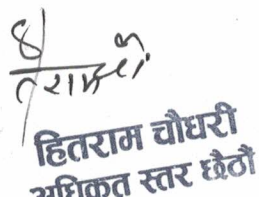 हितराम चौधरी
अधिकृत स्तर छैठौं